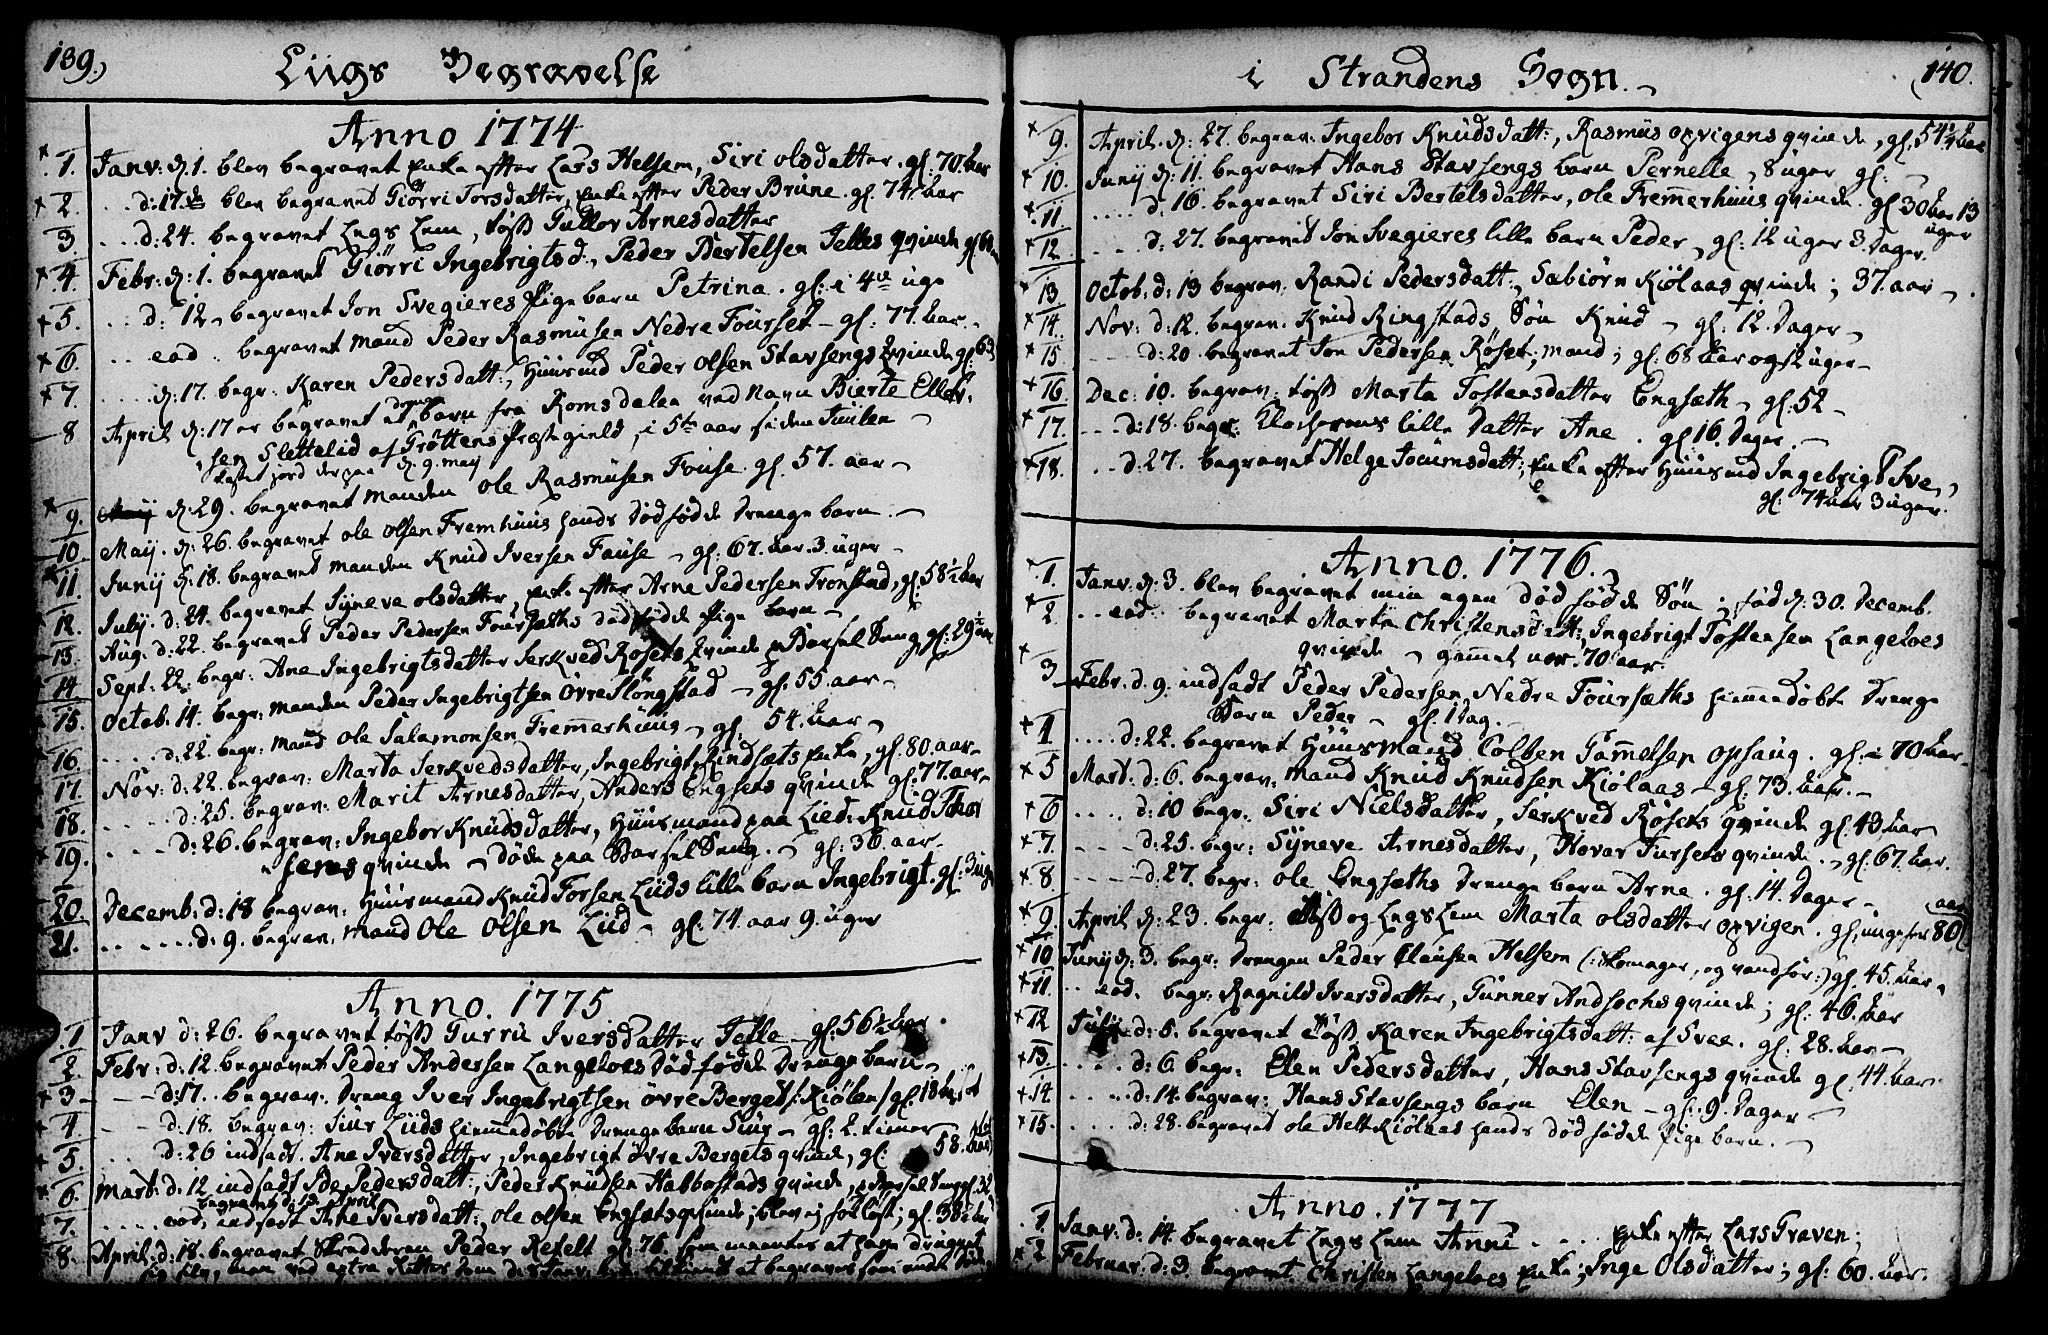 139.)
Liigs Begravelse
Anno 1774
1. Janv: d: 1. blev begravet Enke efter Lars Helsem, Siri olsdatter. gl. 70. aar
2. d: 17de blev begravet Giörri Torsdatter, Enke efter Peder Brune. gl. 74. aar
3. d: 24. begravet Legs Lem, töß Gullov Arnesdatter
4. Febr: d: 1. begravet Giörri Ingebrigtsd:, Peder Bertelsen Jelles qvinde gl
5. d: 12. begravet Jon Svegieres Pige barn Petrina. gl: i 4de uge
6. eod: begravet mand Peder Rasmusen Nedre Fourset gl: 77. aar.
7. d: 17. begr: Karen Pedersdatt:, Huusmd Peder Olsen Stavsengs Qvinde gl: 63
8 April d: 17 er begravet et barn fra Romsdalen ved navn Bierte Ellef-
sen Slettelid af Gröttens Præstegield, i 5te aar siden Juulen
kastet jord derpaa d. 9. maj
9. d. 29. begravet Manden Ole Rasmusen Fouse. gl. 57. aar
10. Maij. d: 26. begravet ole olsen Fremhuus hands dödfödde Drenge barn.
11. Junij d: 18. begravet manden Knud Iversen Fause gl: 67. aar. 3. uger
12. July: d: 24. begravet Syneva olsdatter, Enke efter Arne Pedersen Tronstad, gl: 58 1/2 aar
13. Aug. d: 22. begravet Peder Pedersen Foursæths dödfödde Pige barn
14 Sept: 22. begr: Ane Ingebrigtsdatter Serkved Rösets Qvinde i Barsel Seng gl: 29 1/2 aar
15. Octob: 14. begr: manden Peder Ingebrigtsen Övre Slöngstad gl: 55. aar
16. d: 22. begr: mand Ole Salamonsen Fremmerhuus gl. 54. aar
17. Nov: d: 22. begrav: Marta Serkvedsdatter, Ingebrigt Rindsæts Enke, gl: 80. aar
18. d: 25. begrav: Marit Arnesdatter, Anders Engsets qvinde gl: 77. aar
19. d: 26. begrav: Ingebor Knudsdatter, Huusmand paa Lied: Knud
sens qvinde döde paa Barsel Seng. gl: 36. aar
20. Decemb: d: 18 begrav: Huusmand Knud Torsen Liids lille barn Ingebrigt gl: 3 uger
21. d: 9. begrav: mand Ole Olsen Liid gl: 74 aar 9. uger
Anno. 1775
1. Janv d: 26. begravet töß Gurru Iversdatter Jelle gl: 56 1/2 aar
2. Febr: d: 12. begravet Peder Andersen Langeloes Död födde Drenge barn
3. d: 17. begrav: Dreng Iver Ingebrigtsen övre Berget /: Kiölen/ gl. 18
4. d: 18. begrav: Siur Liids hiemmedöbte Drenge barn Siur gl: 2. timer
5. d: 26 indsadt. Ane Iversdatter, Ingebrigt övre Bergets qvinde, gl: 58. aar
6. Mart: d: 12 indsadt Ide Pedersdatt:, Peder Knudsen Habbostads qvinde, i Barsel Seng gl 32
begravet d: 17 April
7. eod, indsadt Ane Iversdatt:, ole olsen Engsæts qvinde; blev ej forlöst; gl: 38 1/2 aar
8. April: d: 18. begravet Skredderen Peder Refelt gl: 76. som meentes at have drugnet

i Strandens Sogn.
(140.
9. April. d: 27. begrav: Ingebor Knudsdatt:, Rasmus opvigens qvinde, gl. 54 1/4 aar
10. Junij d: 11. begravet Hans Stavsengs barn Pernelle, 8 uger gl:
11. d. 16. begravet Siri Bertelsdatter, ole Fremmerhuus qvinde. gl 30 aar 13 uger
12. d: 27. begravet Jon Svegieres lille barn Peder, gl: 12 uger 3. Dager.
13 Octob: d: 13 begrav: Randi Pedersdatt:, Sabiörn Kiölaas qvinde; 37. aar
14. Nov: d: 12. begrav. Knud Ringstads Sön Knud gl: 12. Dager
15 d: 20. begravet Jon Pedersen Röset; mand; gl: 68 aar og 2 uger
16. Dec: 10. begrav: töß Marta Tostensdatter Engsæth gl: 52
17. d: 18. begr: Klockerens lille Datter Ane. gl 16. Dager.
18. d. 27. begravet Helge Jouurnsdatt:, Enke efter Huusmd Ingebrigt Sve,
gl: 74 aar 3 uger.
Anno. 1776.
1. Janv. d: 3. blev begravet min egen död födde Sön; föd d: 30. Decemb.
2. eod begravet Marta Christensdatt:, Ingebrigt Tostensen Langeloes
qvinde gammel noe: 70 aar.
3 Febr. d. 9. indsadt Peder Pedersen Nedre Foursæths hiemmedöbte Drenge
Barn Peder gl. 1 Dag.
4 d: 22. begravet Huusmand Colben Gammelsen opsaug. gl. 70 aar.
5 Mart: d: 6. begrav: mand Knud Knudsen Kiölaas gl: 73. aar.
6 d: 10 begr: Siri Nielsdatter, Serkved Rösets qvinde gl. 43. aar
7. d: 25. begr: Syneve Arnesdatter, Hovar Fursets qvinde. gl. 67. aar.
8. d: 27. begr: ole Engsæths Drenge barn Arne. gl. 14. Dager
9. April d: 23. begr: töß og Legs Lem Marta olsdatter opvigen. gl, ungefer 80 aar
10 Junij d: 3. begr: Drengen Peder Clausen Helsem (: Skomager, og vandför:) gl. 45. aar
11. eod. begr: Ragnild Iversdatter, Gunner Andsochs qvinde; gl: 46. aar
12 July d: 5. begravet töß Karen Ingebrigtsdatt: af Svee. gl: 28. aar
13. d: 6. begr: Elen Pedersdatter, Hans Stavsengs qvinde gl. 44. aar.
14. d: 14. begrav: Hans Stavsengs barn Elen gl: 9. Dager
15. d: 28. begravet ole Kiölaas hands död födde Pige barn.
Anno. 1777
1. Janv: d: 14. begravet Legs Lem Anni Enke efter Lars Graven;
2 Februar: d: 9. begravet Christen Langeloes Enke; Inge Olsdatter; gl: 60. aar.